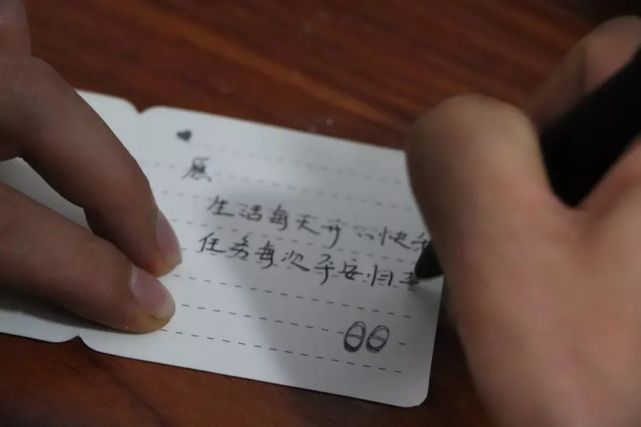 愿
生活每天开心快乐
任务每次平安归